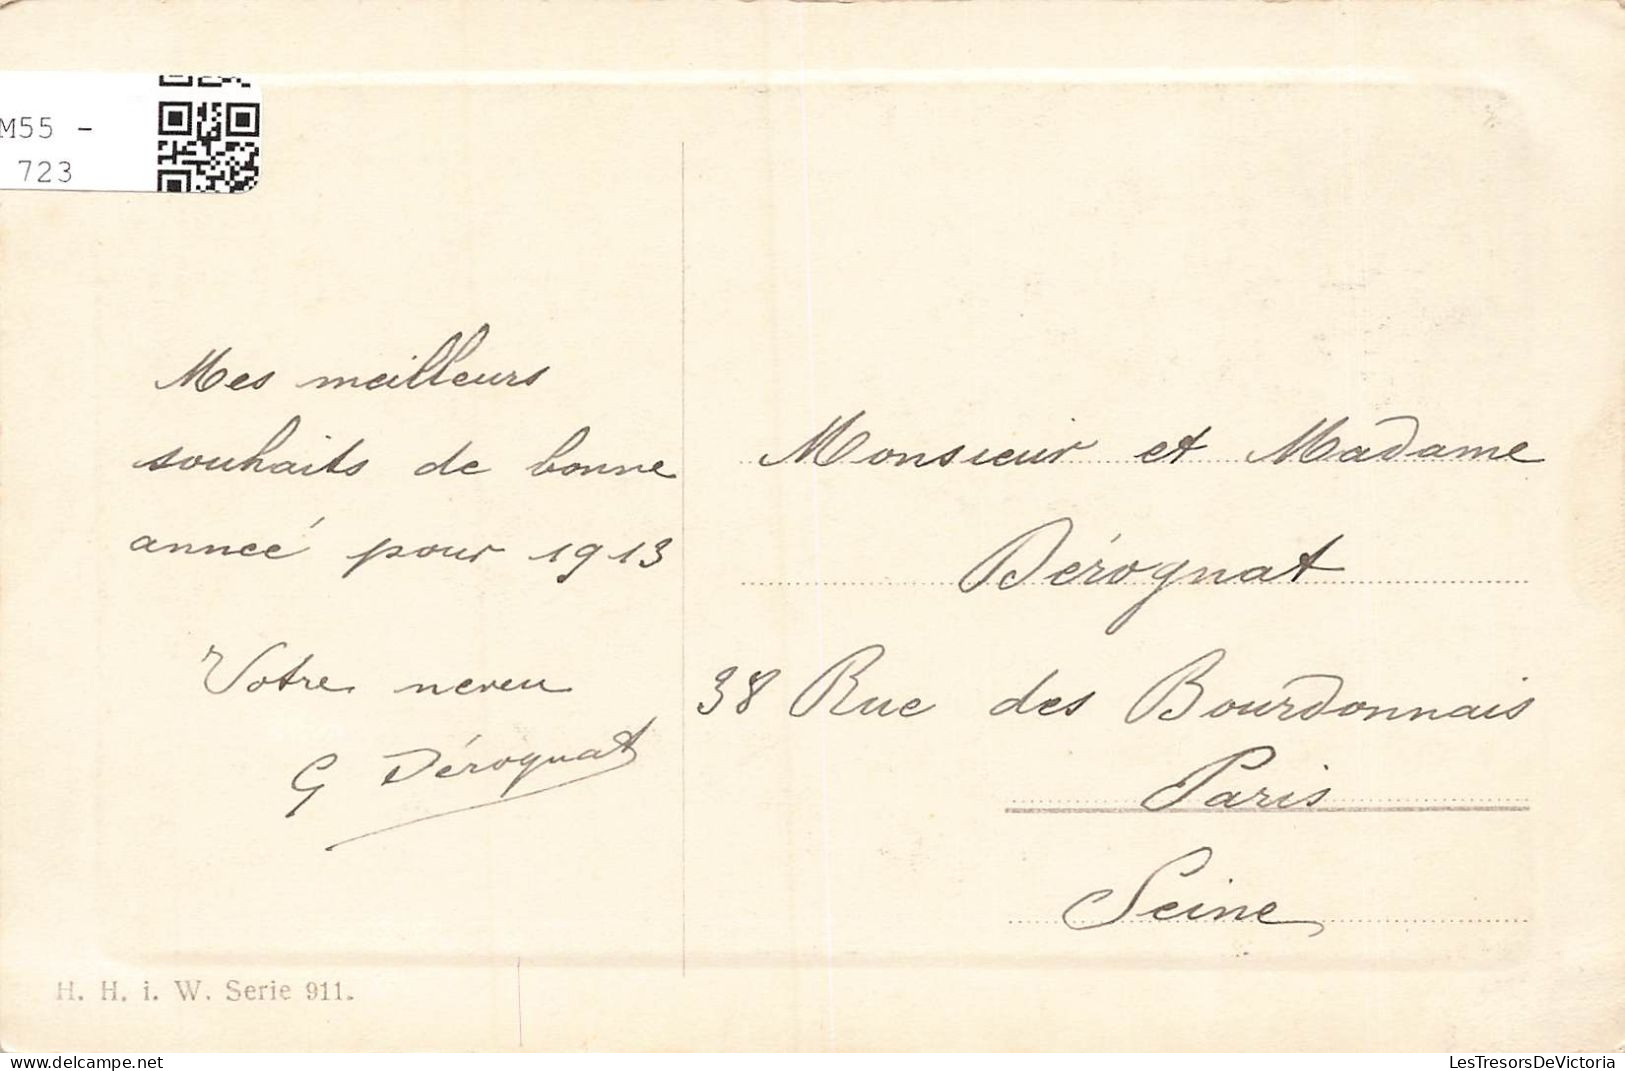 M55 -
723
Mes meilleurs
souhaits de bonne
année pour 1913
Votre neveu
G Dérognat
Monsieur et Madame
Dérognat
38 Rue des Bourdonnais
Paris
Seine
H. H. i. W. Serie 911.
www.delcampe.net
LesTresorsDeVictoria